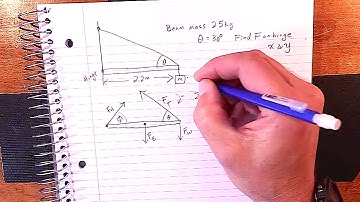 Beam mass 25kg
θ = 30° Find F on hinge
x & y
θ
Hinge
2.2m
m
F_H
F_T
φ
θ
F_B
F_W